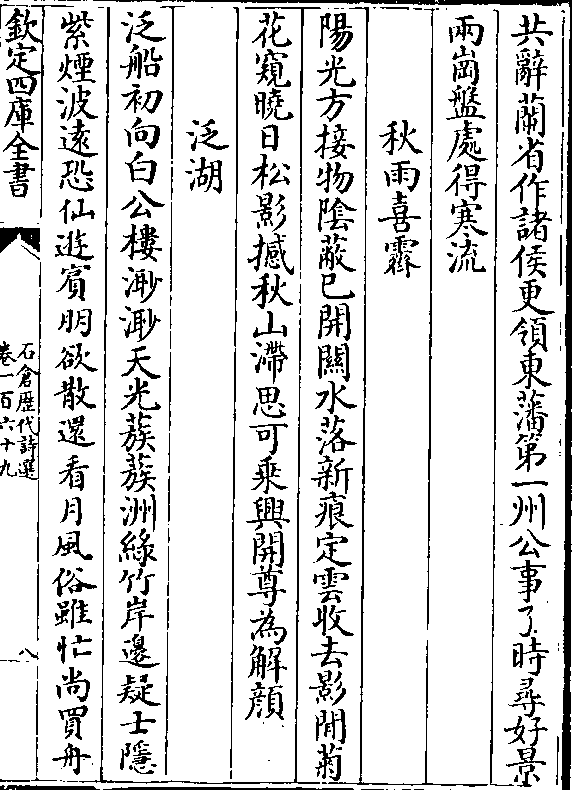 共辭蘭省作諸侯更領東藩第一州公事了時尋好景
兩崗盤處得寒流
秋雨喜霽
陽光方接物陰蔽已開關水落新痕定雲收去影閒菊
花窺曉日松影撼秋山滯思可乘興開尊為解顔
泛湖
泛船初向白公樓渺渺天光蔟蔟洲綠竹岸邊疑士隱
紫煙波遠恐仙遊賓朋欲散還看月風俗雖忙尚買舟
欽定四庫全書
石倉歴代詩選
卷一百六十九
八